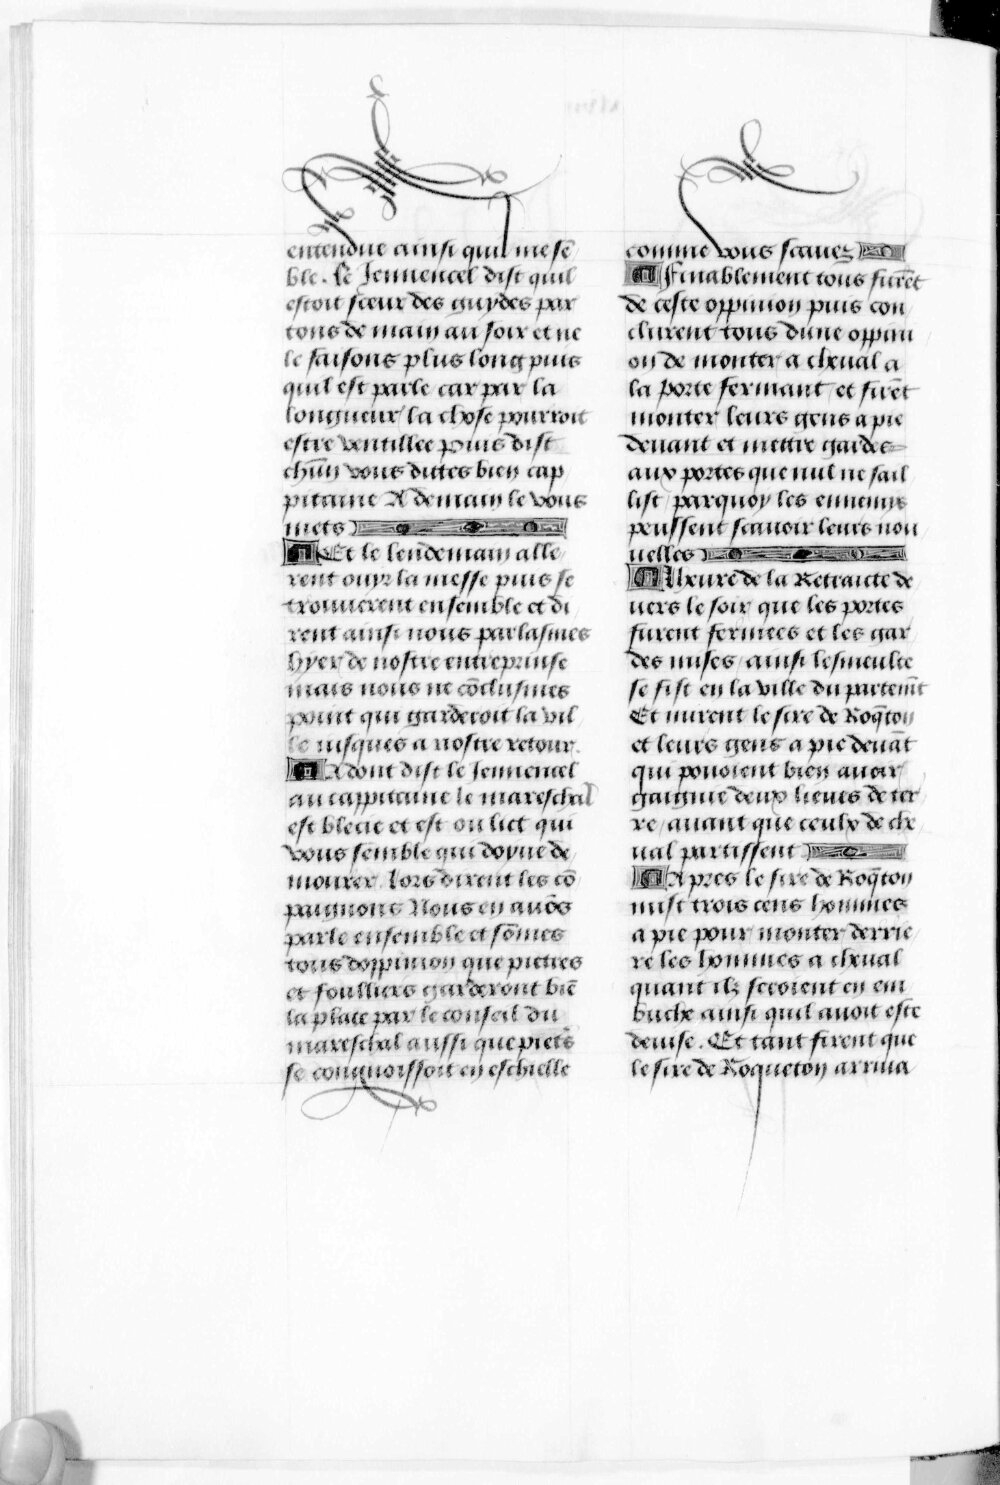 entendue ainsi quil me sē
ble . Le Jennencel dist quil
estoit sœur des guydes par
tons demain au soir et ne
le faisons plus long puis
quil est parle car par la
longueur la chose pourroit
estre ventillee Puis dist
chūn vous dittes bien cap
pitaine A demain le vous
mets
Et le lendemain alle
rent ouyr la messe puis se
trouuerent ensemble et di
rent ainsi nous parlasmes
hyer de nostre entreprinse
mais nous ne cōclusmes
point qui garderoit la vil
le iusques a nostre retour.
Adont dist le Jennencel
au cappitaine le mareschal
est blecie et est ou lict qui
vous semble qui doyue de
mourer / Lors dirent les cō
paignons Nous en auōs
parle ensemble et sōmes
tous doppinion que pietres
et foulliers garderont biē
la place par le conseil du
mareschal aussi que pietrs
se congnoissoit en eschielle
comme vous scauez
Finablement tous furēt
de ceste oppinion puis con
clurent tous dune oppini
on de monter a cheual a
la porte fermant / et firēt
monter leurs gens a pie
deuant et mettre gardes
aux portes que nul ne sail
list / parquoy les ennemis
peussent scauoir leurs nou
uelles
A lheure de la Retraicte de
uers le soir que les portes
furent fermees et les gar
des mises / ainsi lesmeulte
se fist en la ville du partemēt
Et mirent le sire de Roq̄ton
et leurs gens a pie deuāt
qui pouoient bien auoir
gaignie deux lieues de ter
re / auant que ceulx de che
ual partissent
Apres le sire de Roq̄ton
mist trois cens hommes
a pie pour monter derrie
re les hommes a cheual
quant ilz seroient en em
buche ainsi quil auoit este
deuise . Et tant firent que
le sire de Roqueton arriua